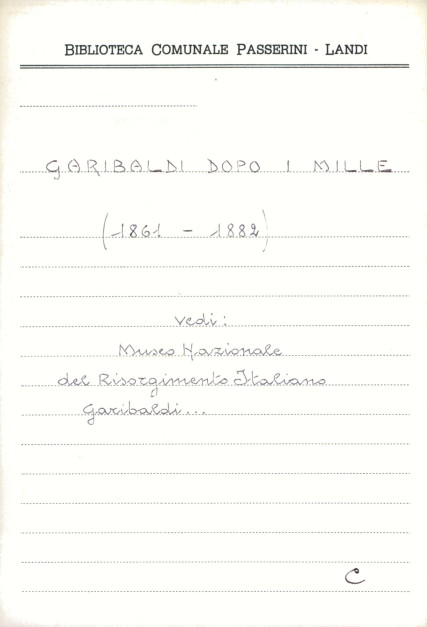 BIBLIOTECA COMUNALE PASSERINI - LANDI
GARIBALDI DOPO I MILLE
(1861 - 1882)
vedi:
Museo Nazionale
del Risorgimento Italiano
Garibaldi...
C